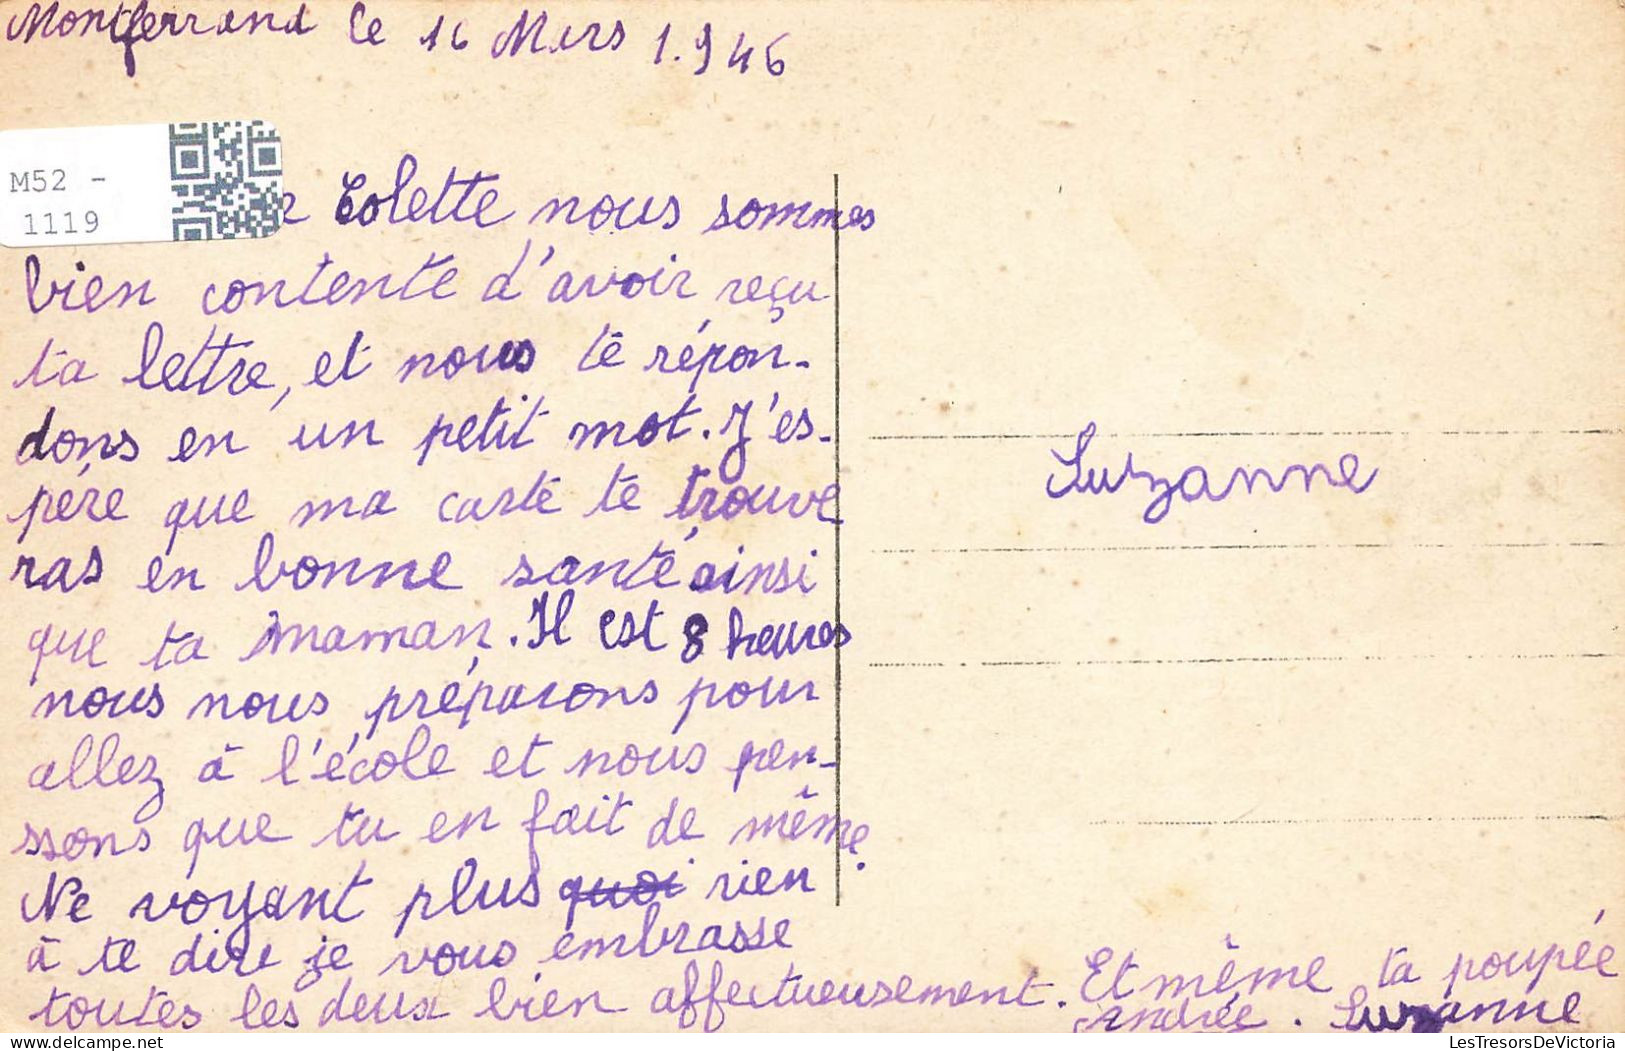 Montferrand le 16 Mars 1.946
M52 -
1119
Colette nous sommes
bien contente d'avoir reçu
ta lettre, et nous te répon-
dons en un petit mot. J'es-
père que ma carte te trouve
ras en bonne santé ainsi
que ta maman. Il est 8 heures
nous nous préparons pour
allez à l'école et nous pen-
ssons que tu en fait de même.
Ne voyant plus quoi rien
à te dire je vous embrasse
toutes les deux bien affectueusement.
Suzanne
Et même ta poupée
Andrée. Suzanne
LesTresorsDeVictoria